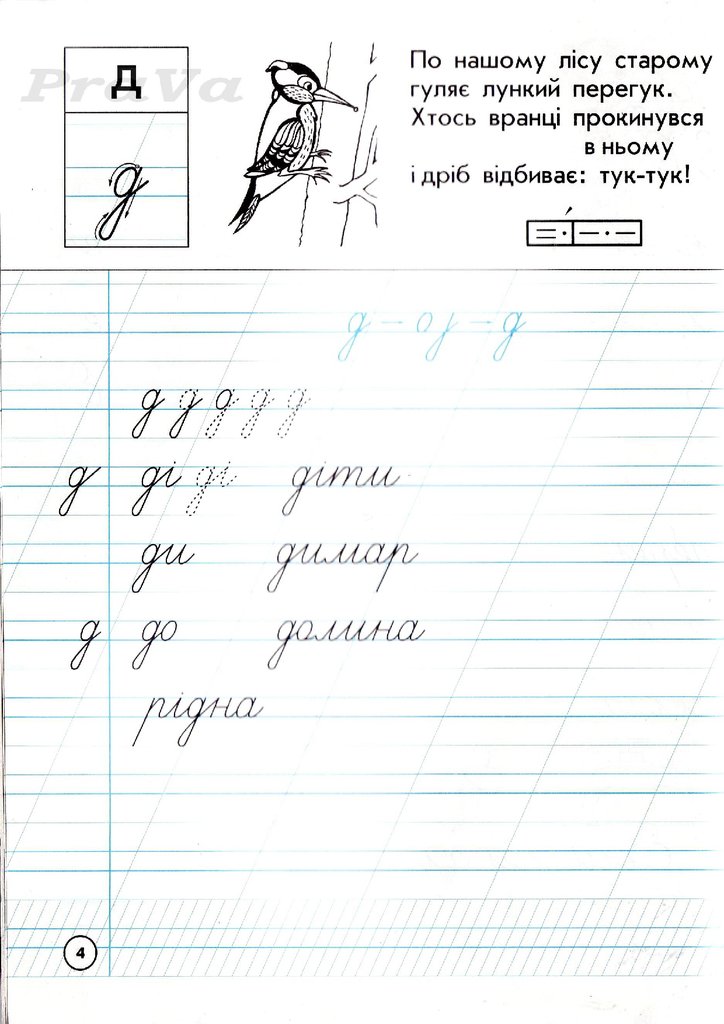 PraVa
Д
д
По нашому лісу старому
гуляє лункий перегук.
Хтось вранці прокинувся
в ньому
і дріб відбиває: тук-тук!
д – оj – д
д д д д д
д ді ді діти
ди димар
д до долина
рідна
4